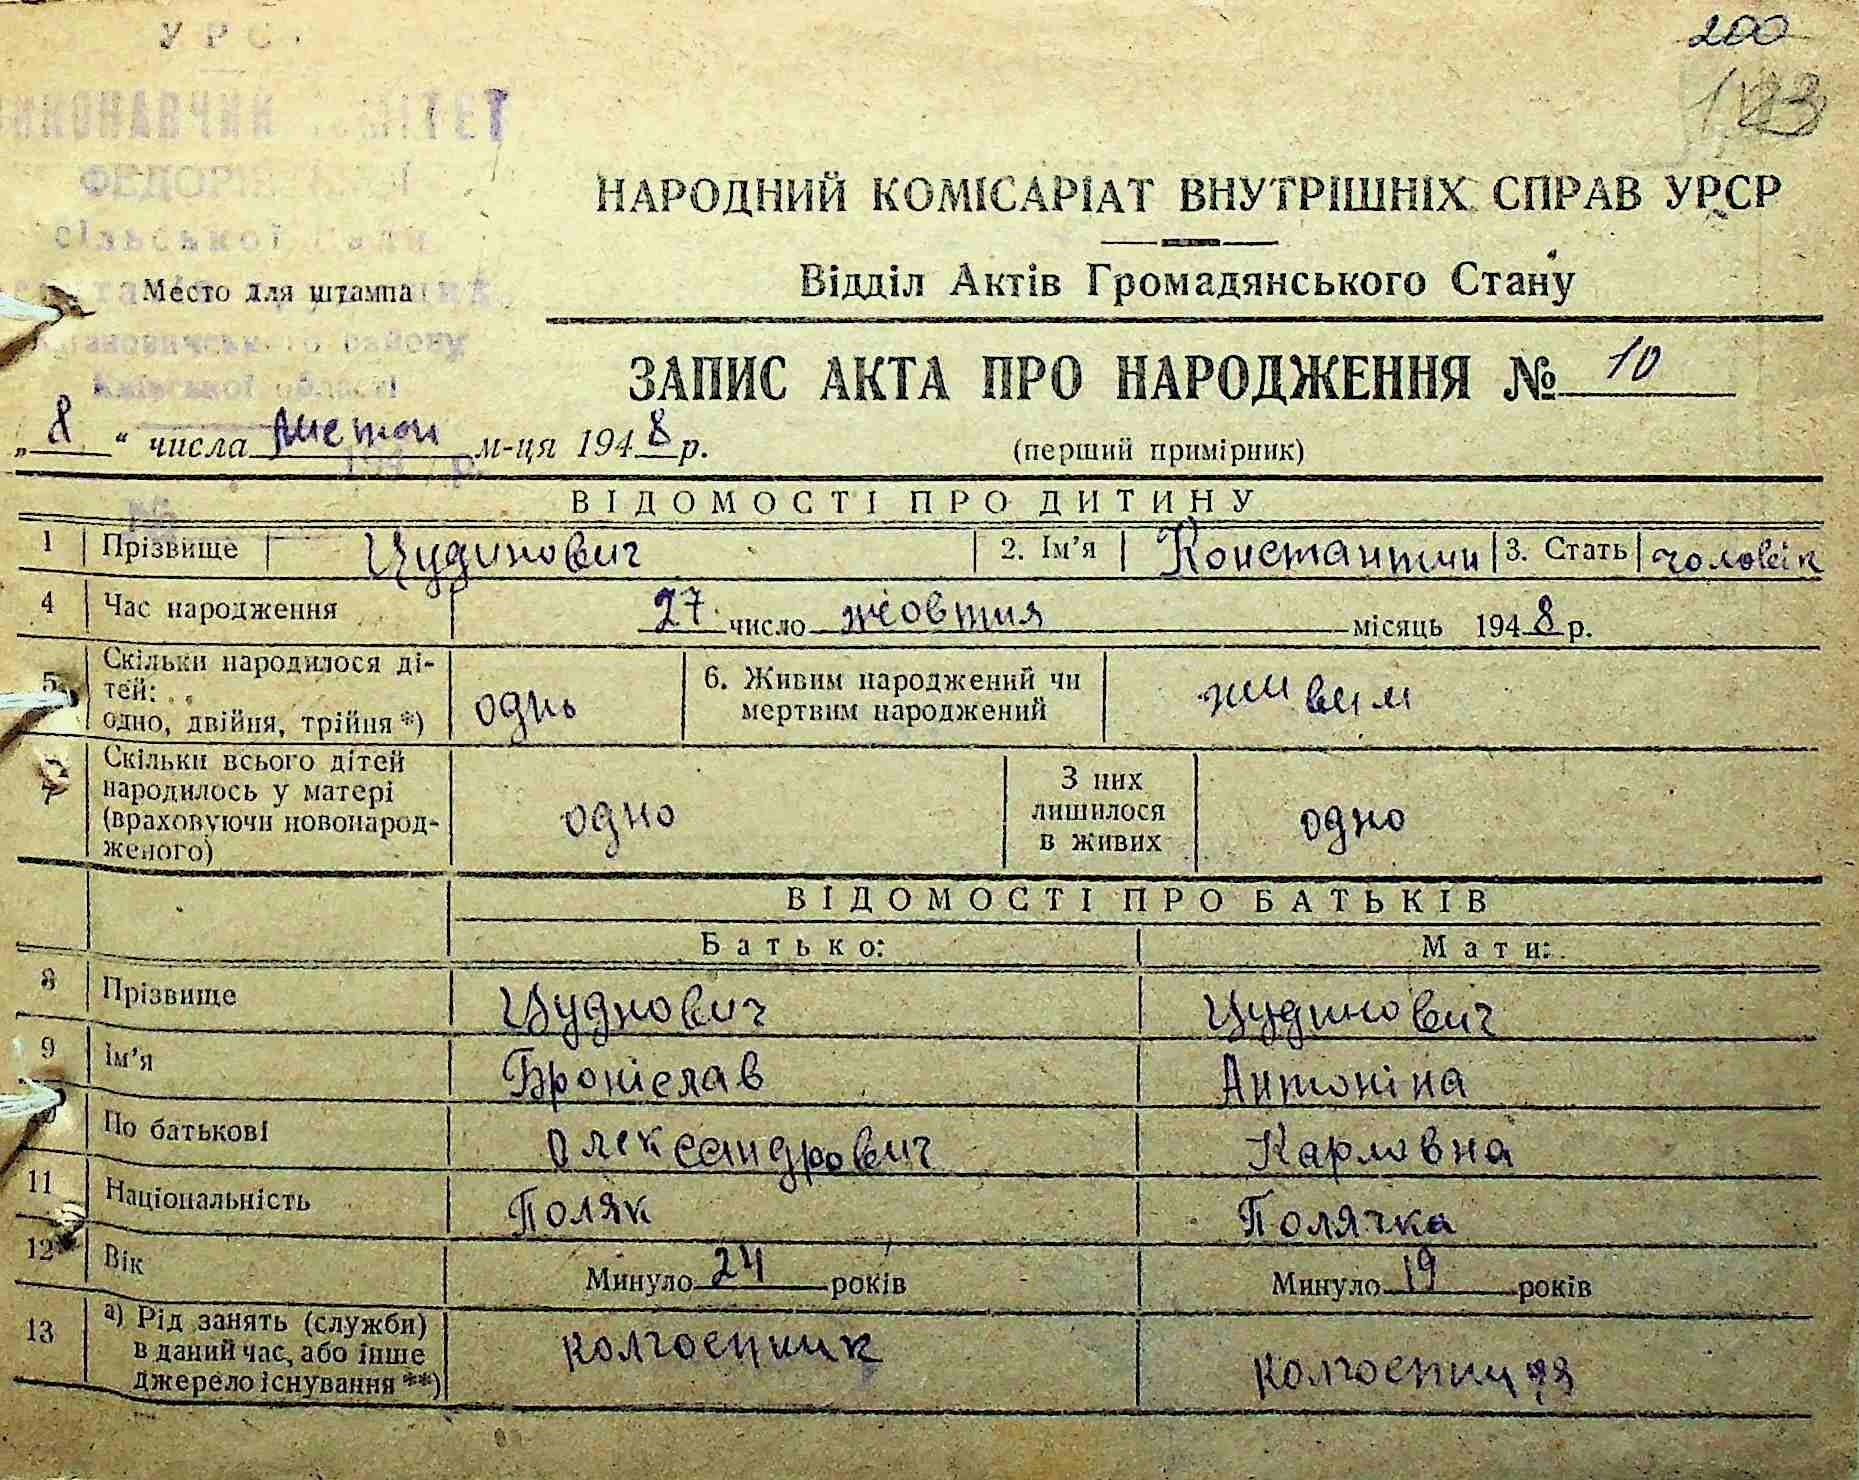 УРСР
ВИКОНАВЧИЙ КОМІТЕТ
200
123
сільської Ради
Кагановичського району
Київської області
Место для штампа
НАРОДНИЙ КОМІСАРІАТ ВНУТРІШНІХ СПРАВ УРСР
Відділ Актів Громадянського Стану
ЗАПИС АКТА ПРО НАРОДЖЕННЯ № 10
„8“ числа листоп м-ця 1948 р.
(перший примірник)
№
ВІДОМОСТІ ПРО ДИТИНУ
1 Прізвище Цудинович 2. Ім'я Константин 3. Стать чоловік
4 Час народження 27 число жовтня місяць 1948 р.
5 Скільки народилося дітей: одно, двійня, трійня *) однь 6. Живим народжений чи мертвим народжений живим
7 Скільки всього дітей народилось у матері (враховуючи новонародженого) одно З них лишилося в живих одно
ВІДОМОСТІ ПРО БАТЬКІВ
Батько: Мати:
8 Прізвище Цуднович Цудинович
9 Ім'я Броніслав Антоніна
10 По батькові Олександрович Карловна
11 Національність Поляк Полячка
12 Вік Минуло 24 років Минуло 19 років
13 а) Рід занять (служби) в даний час, або інше джерело існування **) колгоспник колгоспниця